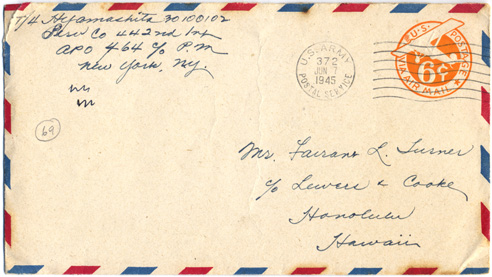 T/4 H. Yamashita 30100102
Serv Co 442nd Inf
APO 464 c/o P.M
New York, N.Y.
U.S. ARMY
372
JUN 7
1945
POSTAL SERVICE
U.S. POSTAGE
6¢
VIA AIR MAIL
69
Mr. Farrant L. Turner
c/o Lewers & Cooke
Honolulu
Hawaii